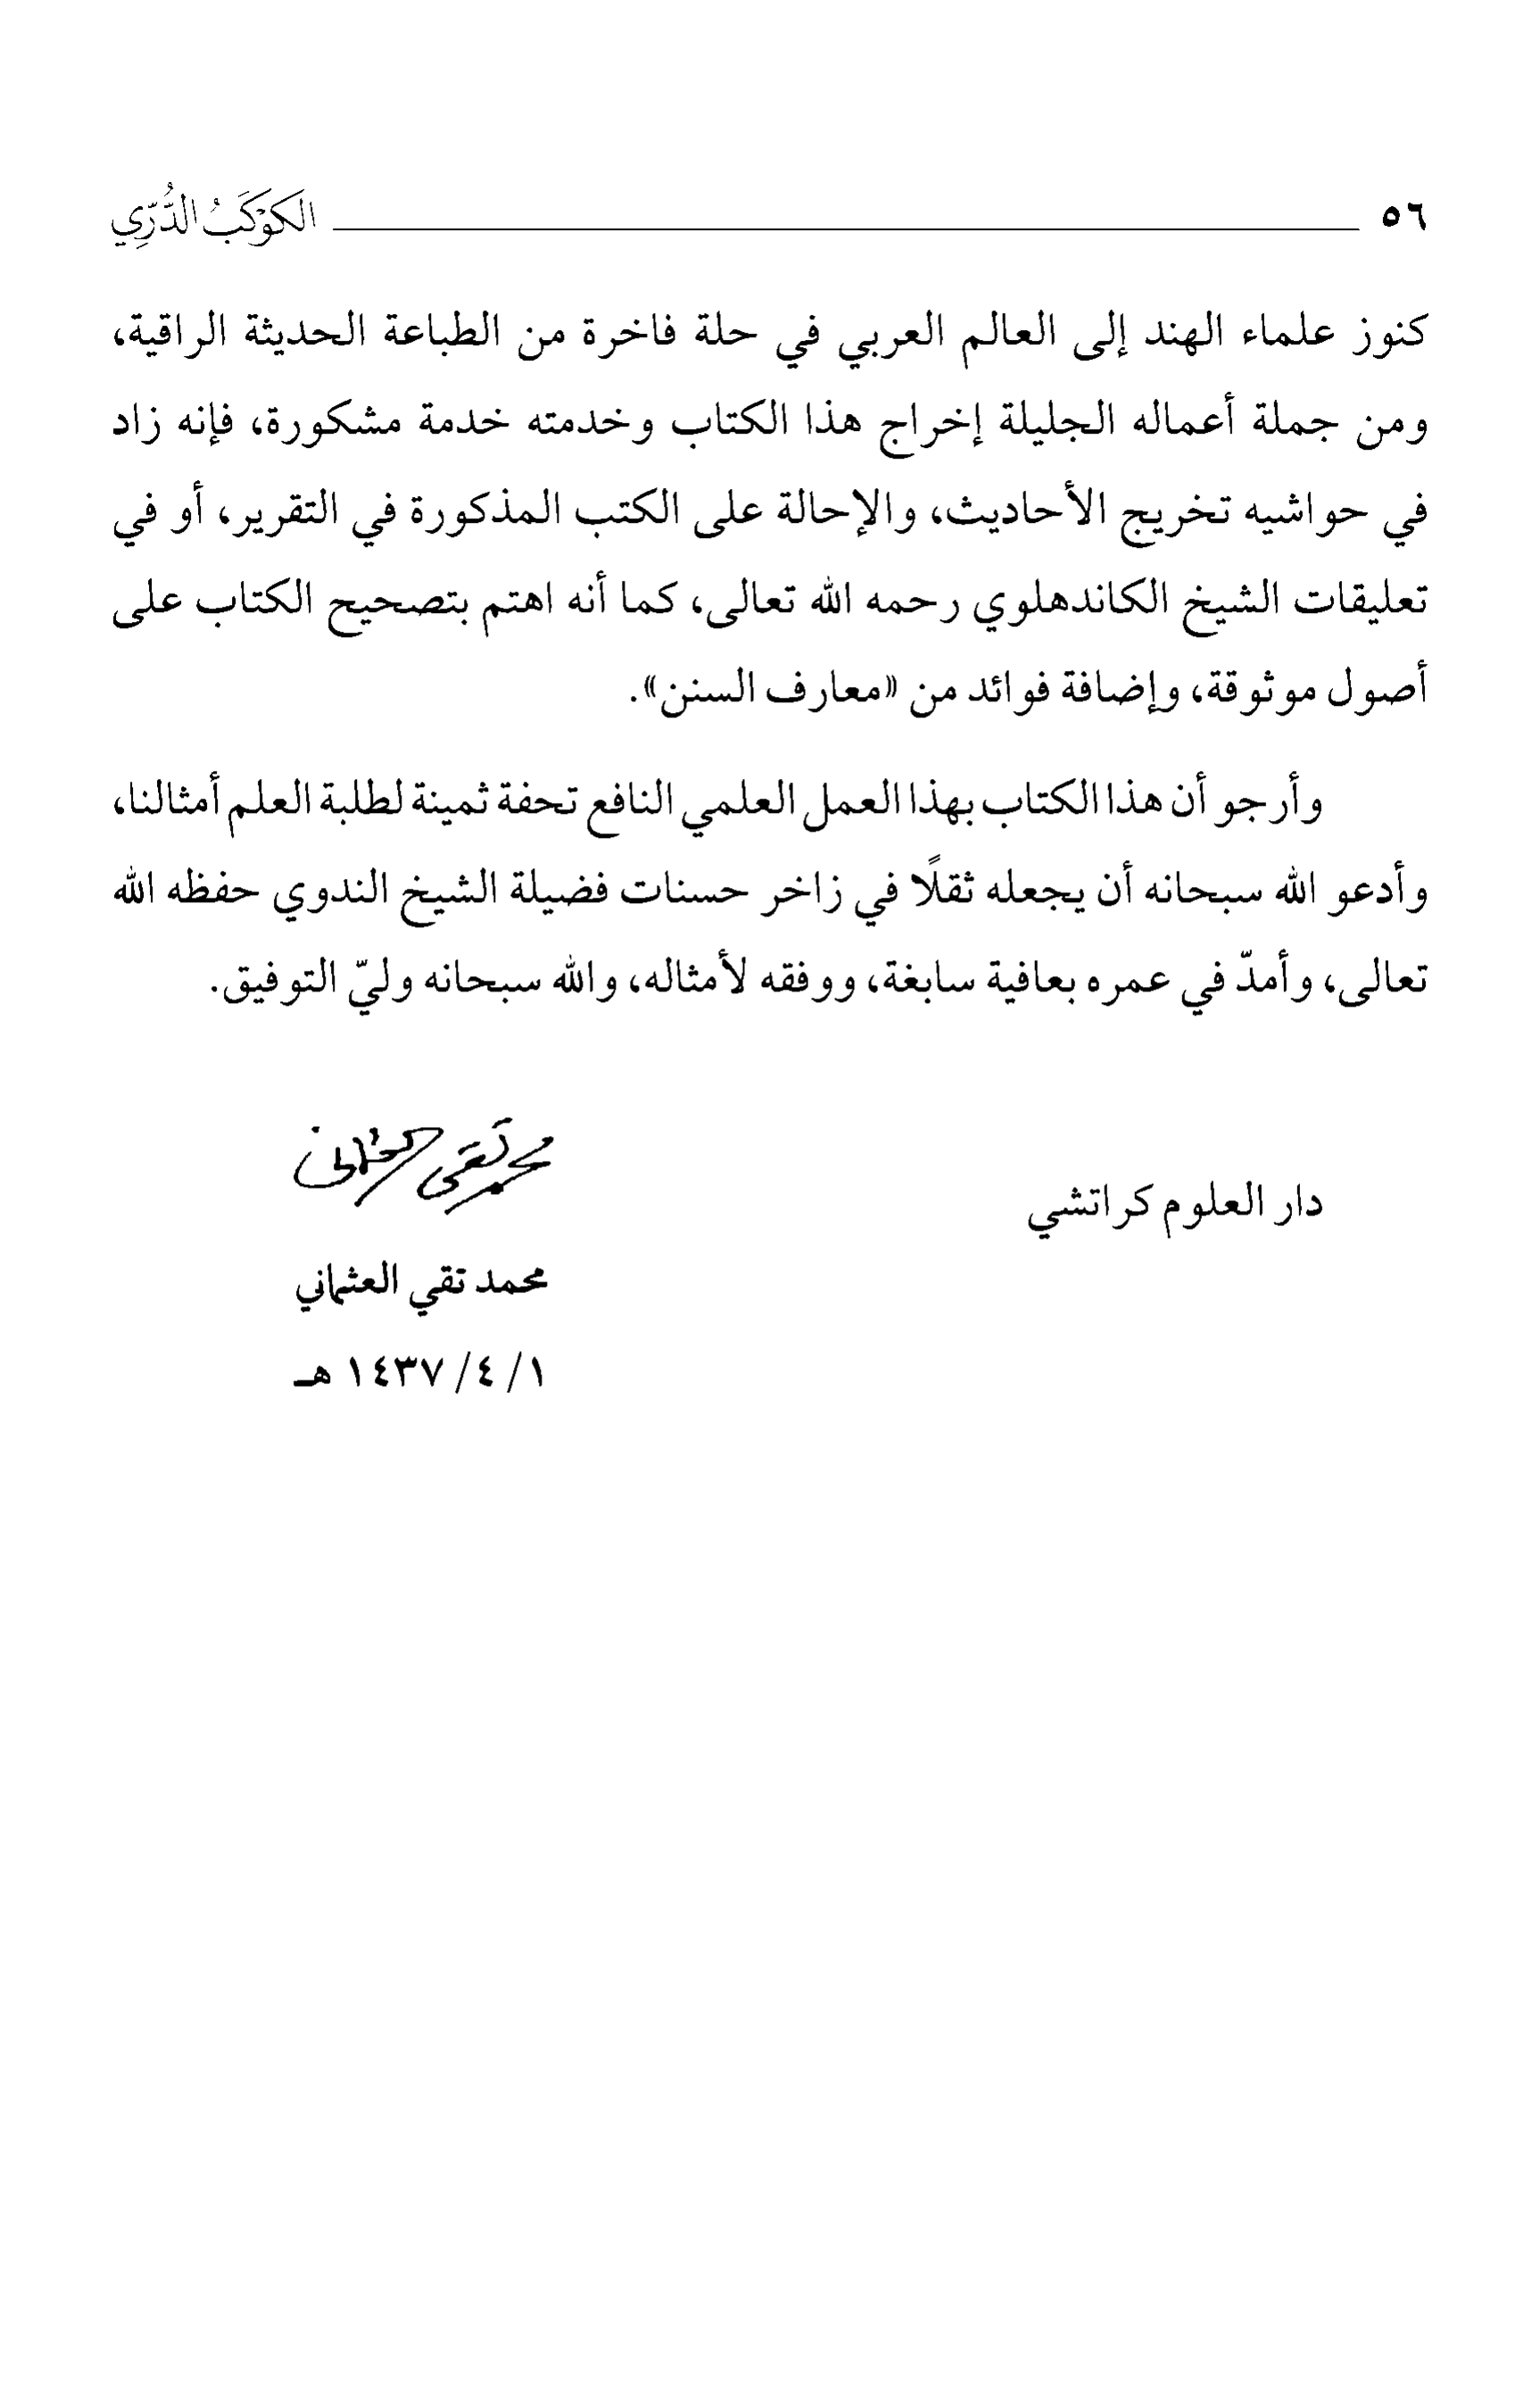 ٥٦ الكَوْكَبُ الدُّرِّي
كنوز علماء الهند إلى العالم العربي في حلة فاخرة من الطباعة الحديثة الراقية،
ومن جملة أعماله الجليلة إخراج هذا الكتاب وخدمته خدمة مشكورة، فإنه زاد
في حواشيه تخريج الأحاديث، والإحالة على الكتب المذكورة في التقرير، أو في
تعليقات الشيخ الكاندهلوي رحمه الله تعالى، كما أنه اهتم بتصحيح الكتاب على
أصول موثوقة، وإضافة فوائد من «معارف السنن».
وأرجو أن هذا الكتاب بهذا العمل العلمي النافع تحفة ثمينة لطلبة العلم أمثالنا،
وأدعو الله سبحانه أن يجعله ثقلًا في زاخر حسنات فضيلة الشيخ الندوي حفظه الله
تعالى، وأمدّ في عمره بعافية سابغة، ووفقه لأمثاله، والله سبحانه وليّ التوفيق.
محمد تقي العثماني
دار العلوم كراتشي
محمد تقي العثماني
١/ ٤/ ١٤٣٧ هـ